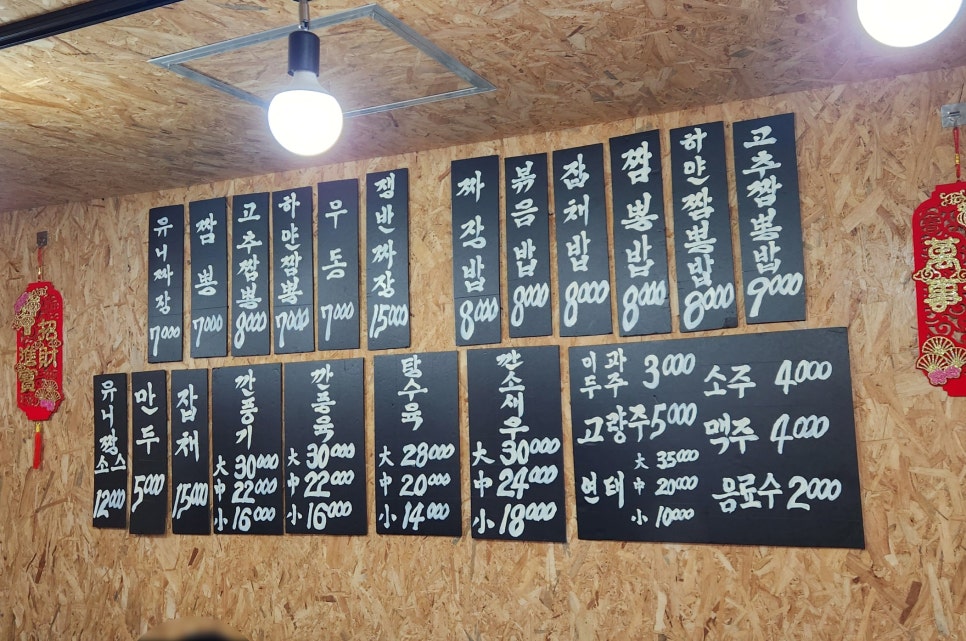 유니짜장 7000
짬뽕 7000
고추짬뽕 8000
하얀짬뽕 7000
우동 7000
쟁반짜장 15000
짜장밥 8000
볶음밥 8000
잡채밥 8000
짬뽕밥 8000
하얀짬뽕밥 8000
고추짬뽕밥 9000
유니짱소스 12000
만두 5000
잡채 15000
깐풍기
大 30000
中 22000
小 16000
깐풍육
大 30000
中 22000
小 16000
탕수육
大 28000
中 20000
小 14000
깐소새우
大 30000
中 24000
小 18000
이과두주 3000
고량주 5000
연태
大 35000
中 20000
小 10000
소주 4000
맥주 4000
음료수 2000
招財
進寶
萬事